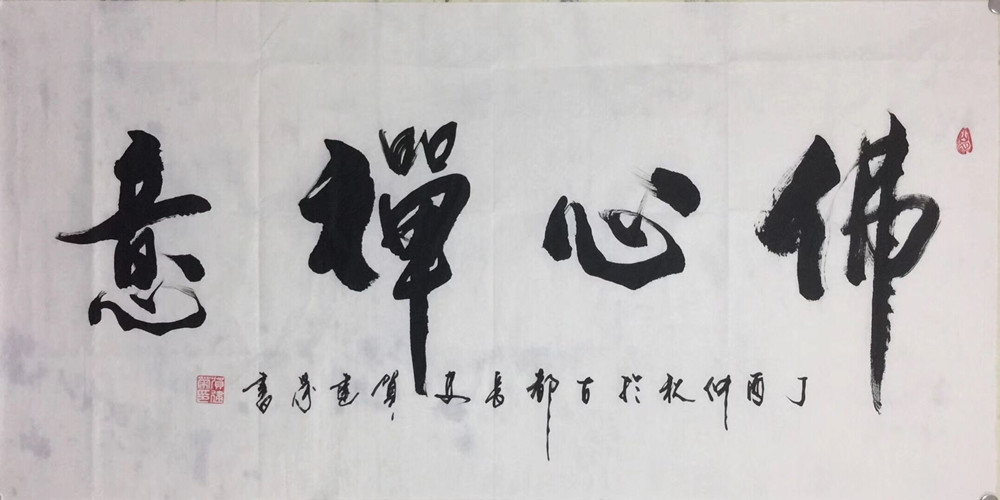 佛心禪意
丁酉仲秋於古都長安賀建書